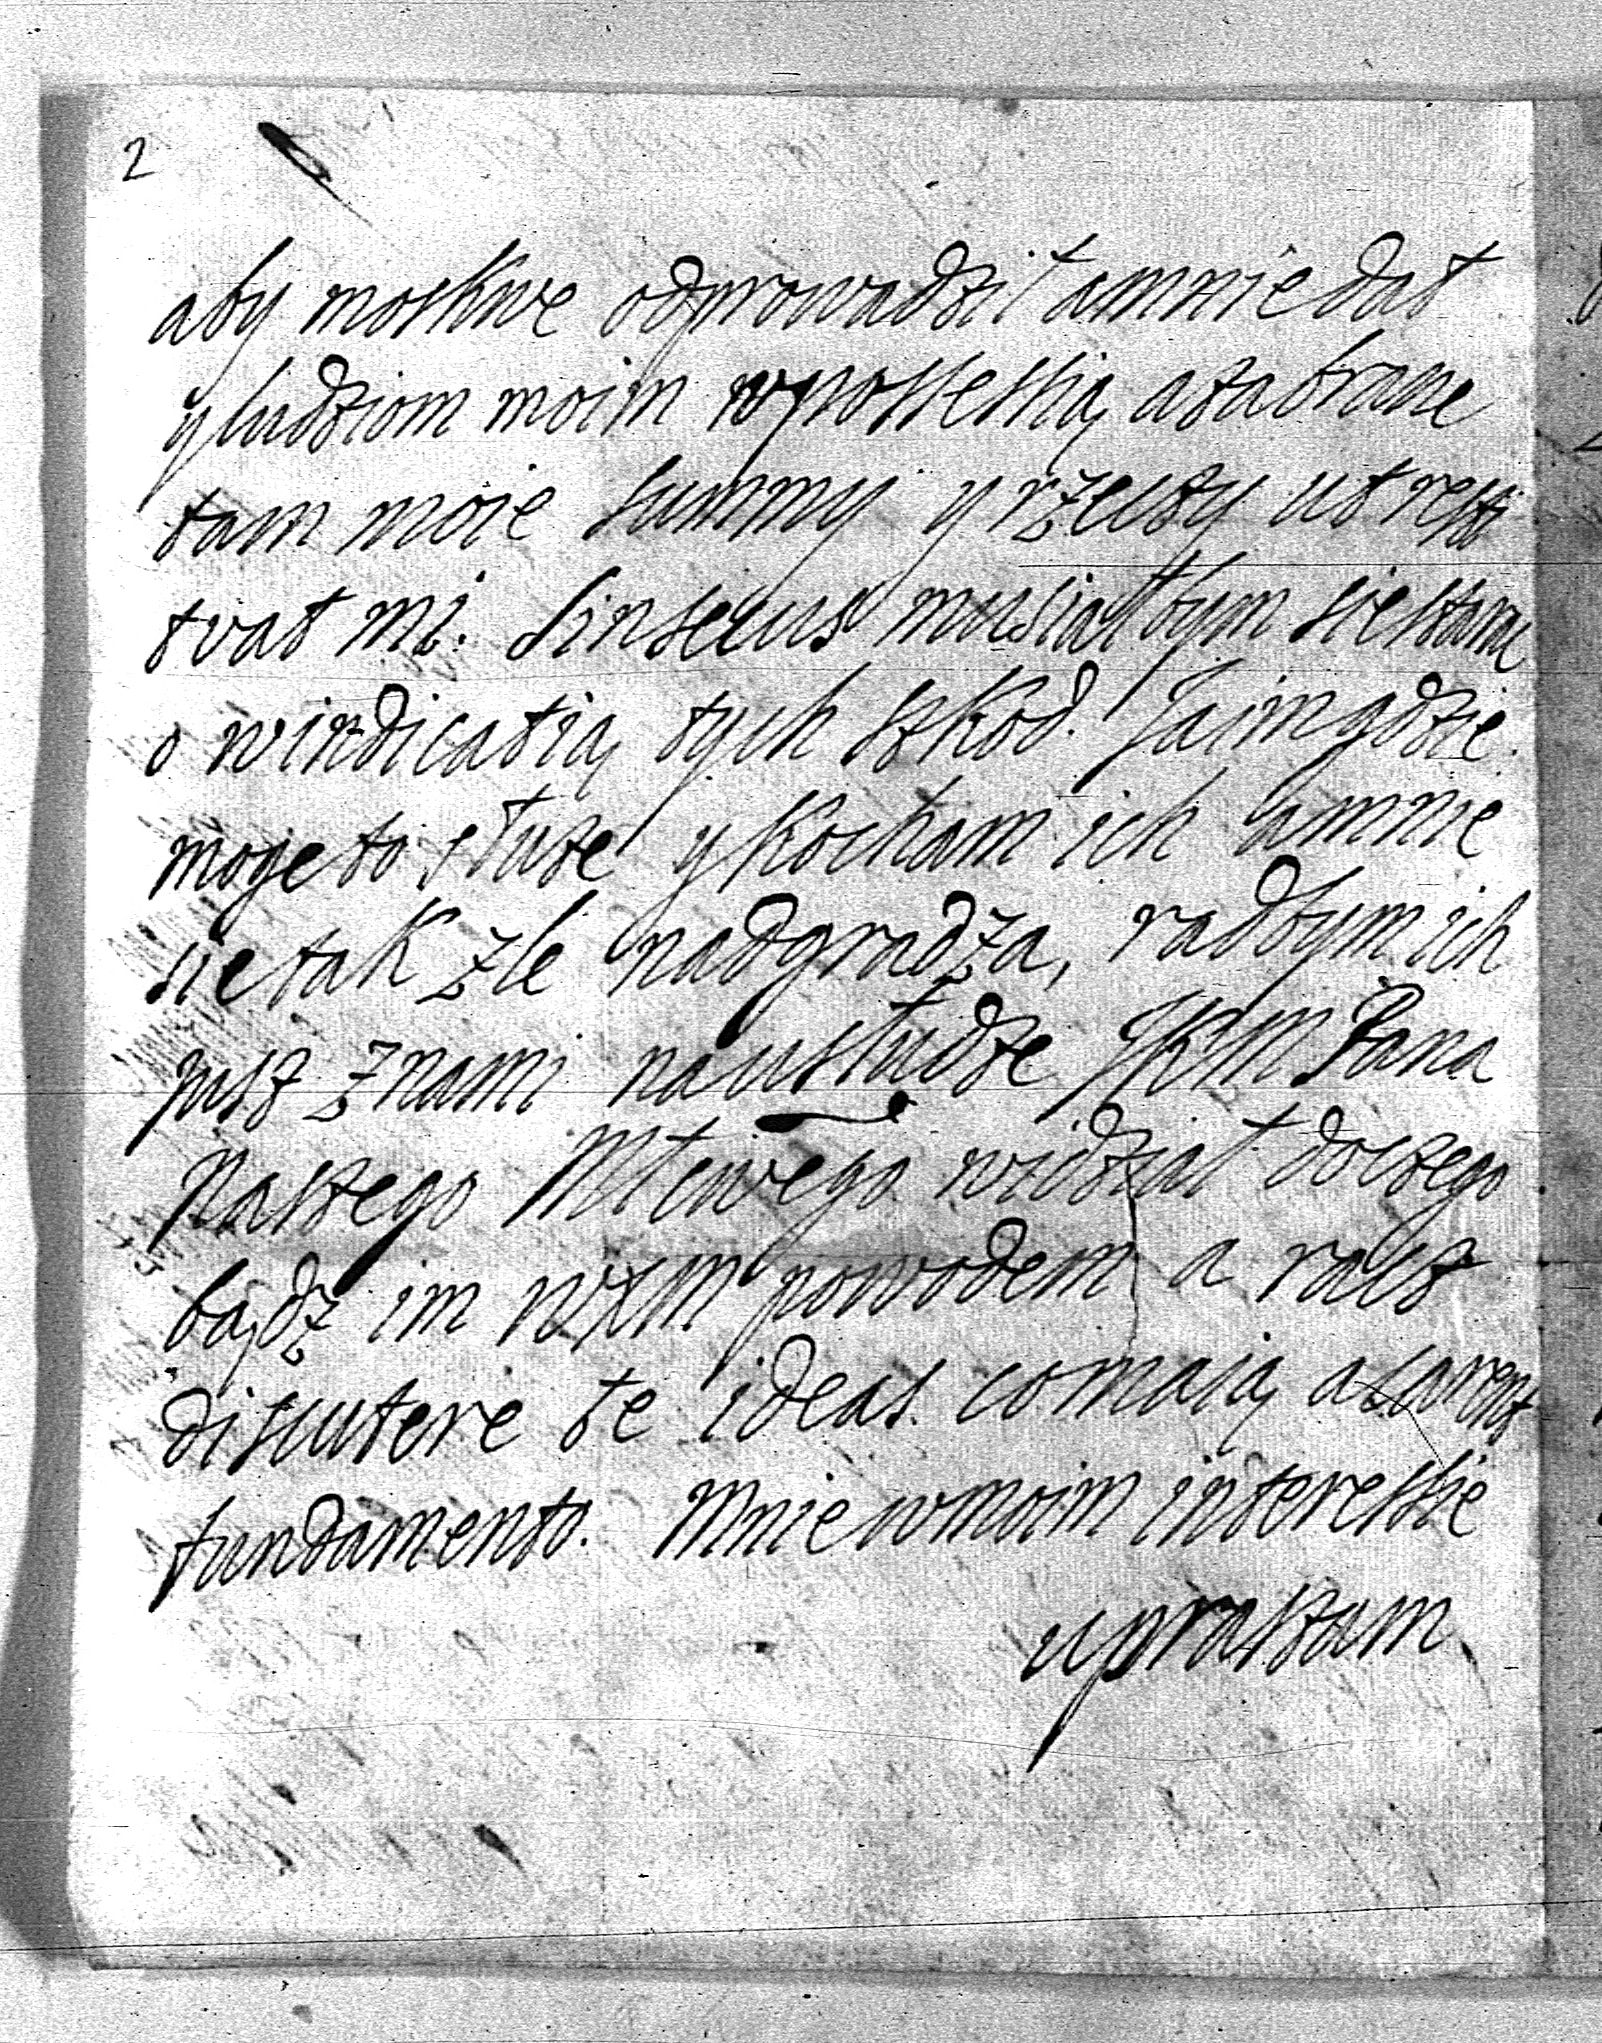 2
aby moskwe odprowadził a mnie dał
y ludziom moim w possessią a zabrane
tam moie summy y rzeczy ut resti
tuat mi. Sin secus musiałbym sie starac
o windicatią tych szkod. Ja im gdzie
moge to słuze y kocham ich a mnie
sie tak zle nadgradza, radbym ich
jusz z nami na usłudze JKM Pana
Naszego Młciwego widział do czego
bądz im WXM powodem a racz
discutere te ideas co maią a carent
fundamento. Mnie w moim interessie
upraszam